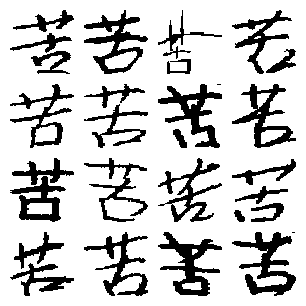 苦苦苦苦
苦苦苦苦
苦苦苦苦
苦苦苦苦